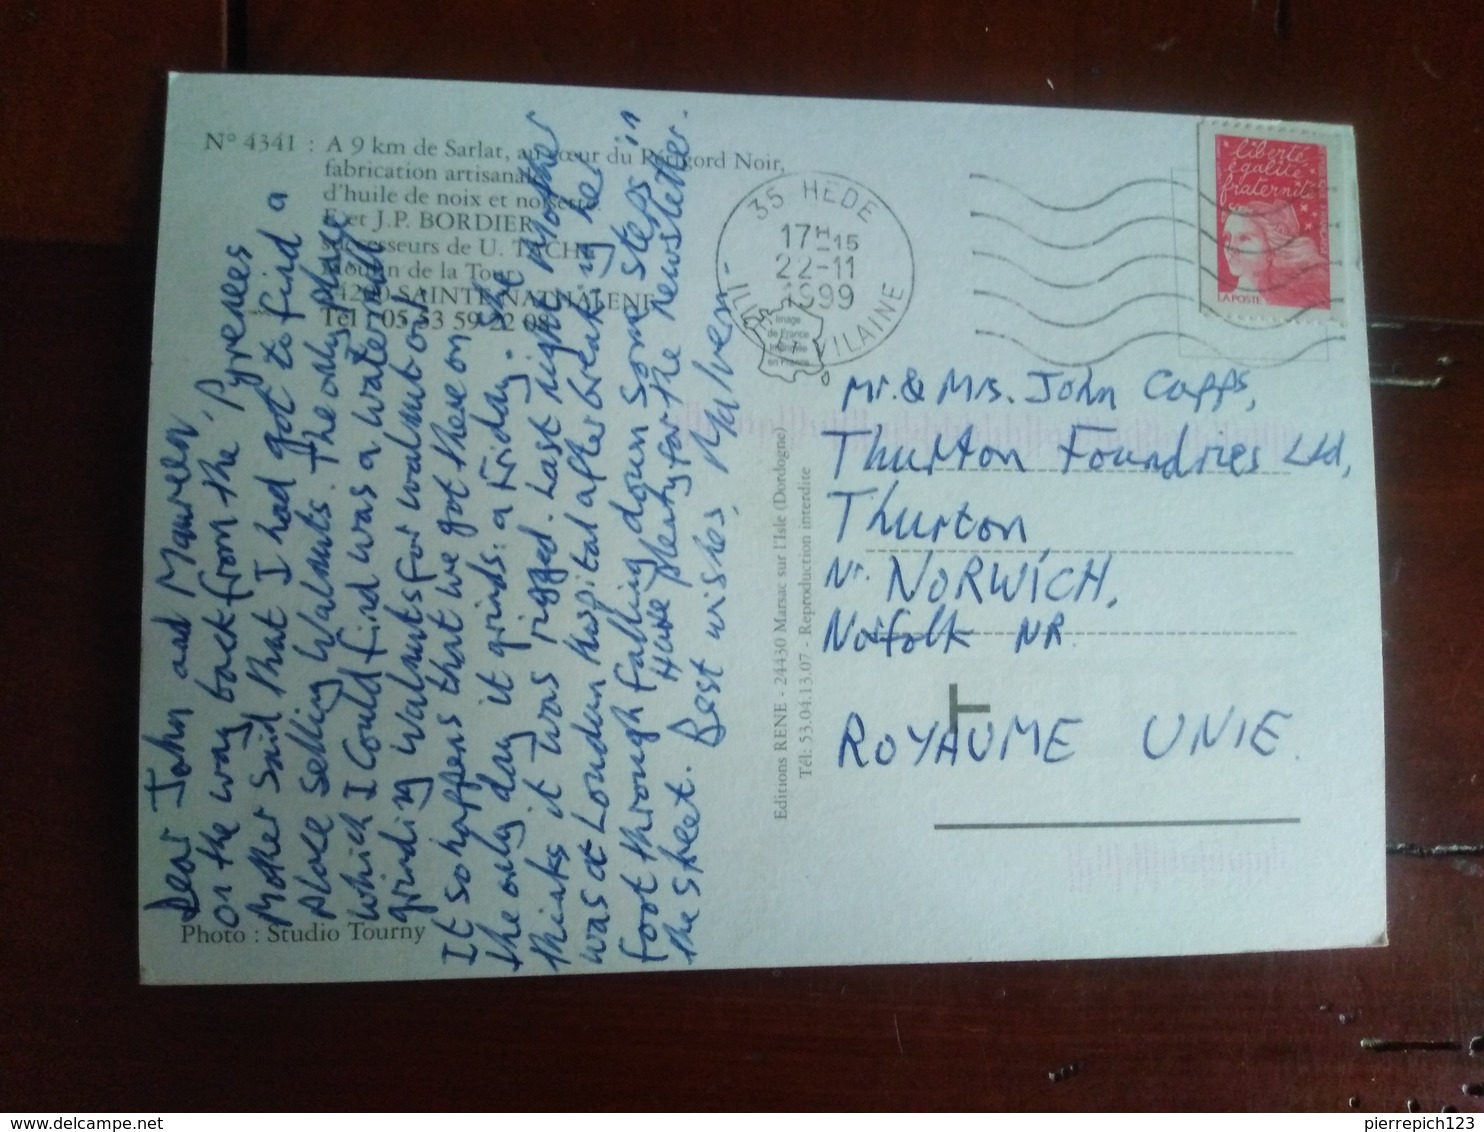 N° 4341 : A 9 km de Sarlat, au cœur du Périgord Noir,
fabrication artisanale
d'huile de noix et noisette
E. et J.P. BORDIER
successeurs de U. TACHE
Moulin de la Tour
24200 SAINTE NATHALENE
Tel : 05 53 59 22 08
Photo : Studio Tourny
Dear John and Maureen,
on the way back from the Pyrenees
Mother said that I had got to find a
place selling walnuts. The only place
which I could find was a watermill
grinding walnuts for walnut oil.
It so happens that we got there on
the only day it grinds: a Friday. Mother
thinks it was rigged. Last night she
was at London hospital after breaking her
foot through falling down some steps in
the street. Have plenty for the newsletter.
Best wishes, Malvern
Editions RENE - 24430 Marsac sur l'Isle (Dordogne)
Tél: 53.04.13.07 - Reproduction interdite
35 HEDE
17H15
22-11
1999
ILLE ET VILAINE
Image
de France
Imprimée
en France
liberté
égalité
fraternité
LA POSTE
Mr. & Mrs. John Capps,
Thurton Foundries Ltd,
Thurton,
Nr. NORWICH,
Norfolk NR
ROYAUME UNIE.
pierrepich123